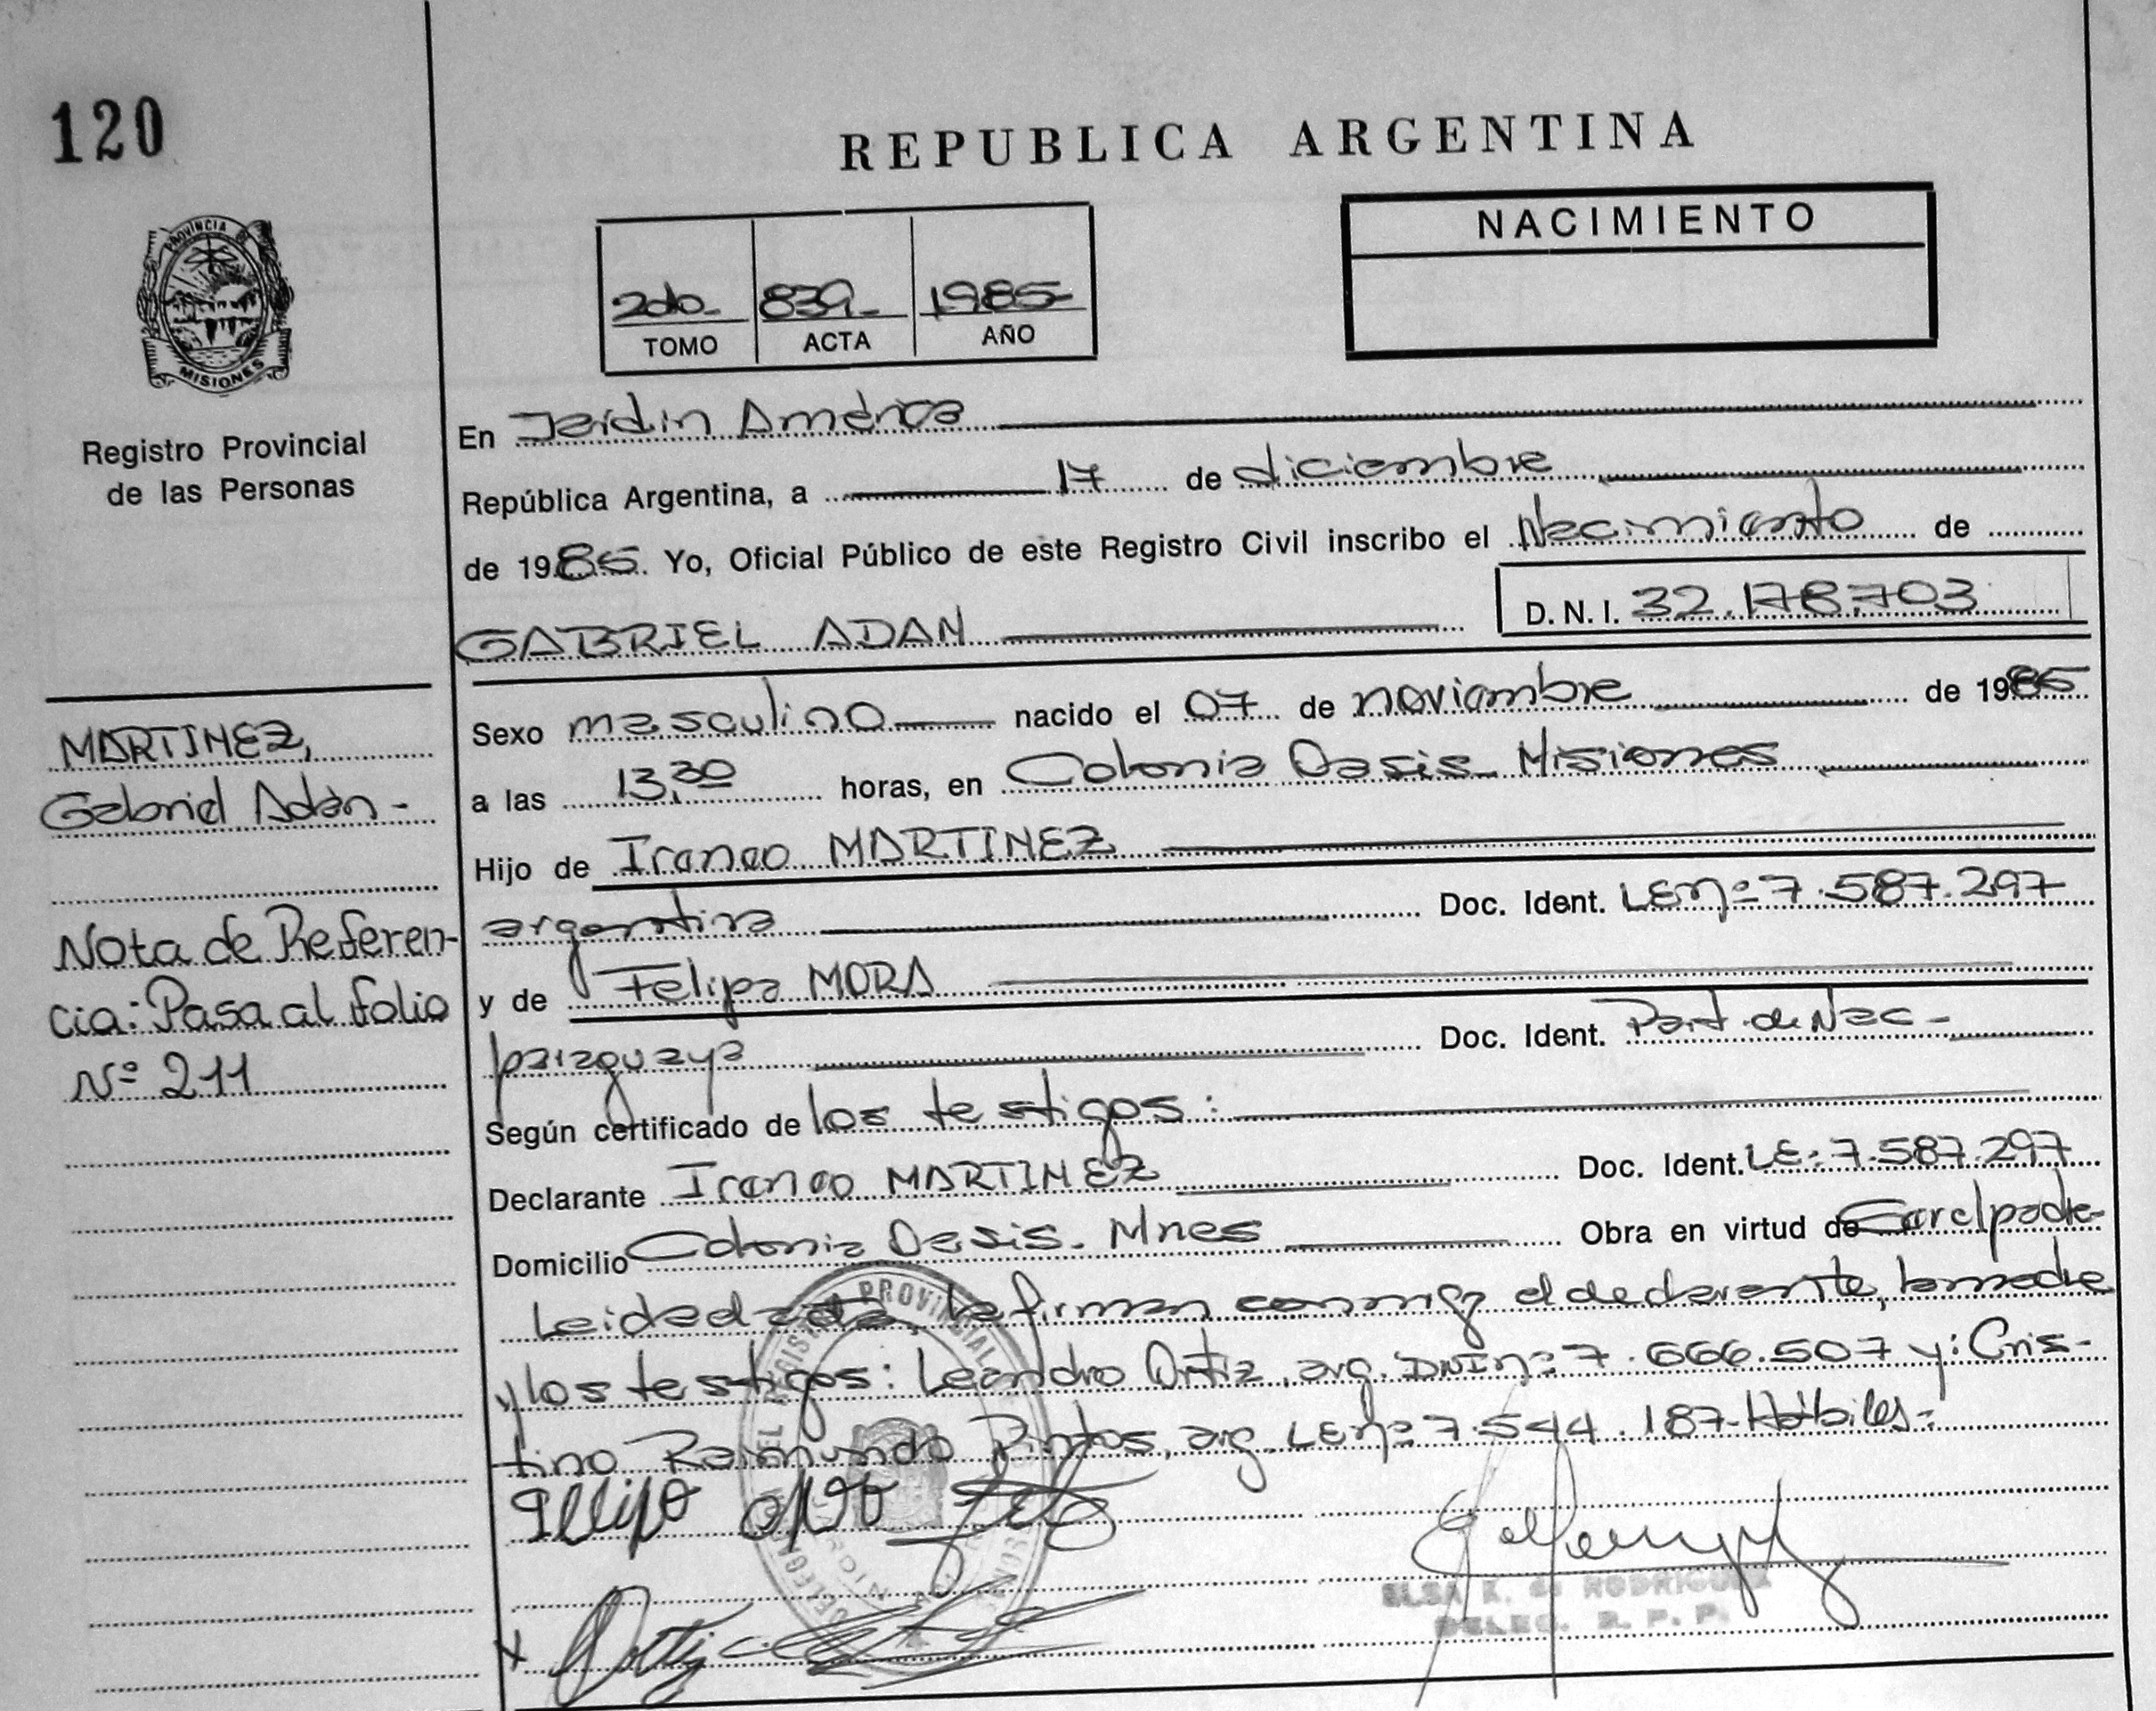 120
REPUBLICA ARGENTINA
PROVINCIA DE
MISIONES
Registro Provincial
de las Personas
2do- 839- 1985-
TOMO ACTA AÑO
NACIMIENTO
En Jardin América
República Argentina, a 17 de diciembre
de 1985. Yo, Oficial Público de este Registro Civil inscribo el Nacimiento de
GABRIEL ADAN D. N. I. 32.178.703
MARTINEZ,
Gabriel Adán-
Nota de Referen-
cia: Pasa al folio
Nº 211
Sexo masculino nacido el 07 de noviembre de 1985
a las 13,30 horas, en Colonia Oasis- Misiones
Hijo de Ireneo MARTINEZ
argentina Doc. Ident. LEnº 7.587.297
y de Felipa MORA
paraguaya Doc. Ident. Part. de Nac-
Según certificado de los testigos:
Declarante Ireneo MARTINEZ Doc. Ident. LE: 7.587.297
Domicilio Colonia Oasis- Mnes Obra en virtud de
Leida el acta, la firman conmigo el declarante, la madre
y los testigos: Leandro Ortiz, arg. DNInº 7.666.507 y: Cris-
tino Raimundo Pintos, arg. LEnº 7.544.187- Hábiles-
ELSA K. de RODRIGUEZ
DELEG. R. P. P.